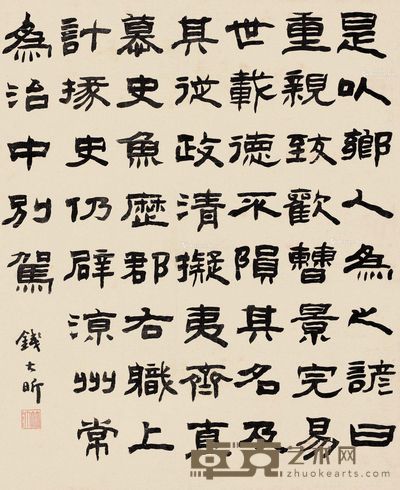 是以鄉人為之諺曰
重親致歡曹景完易
世載德不隕其名及
其從政清擬夷齊直
慕史魚歷郡右職上
計掾史仍辟涼州常
為治中別駕
錢大昕
卓克艺术网
zhuokearts.com